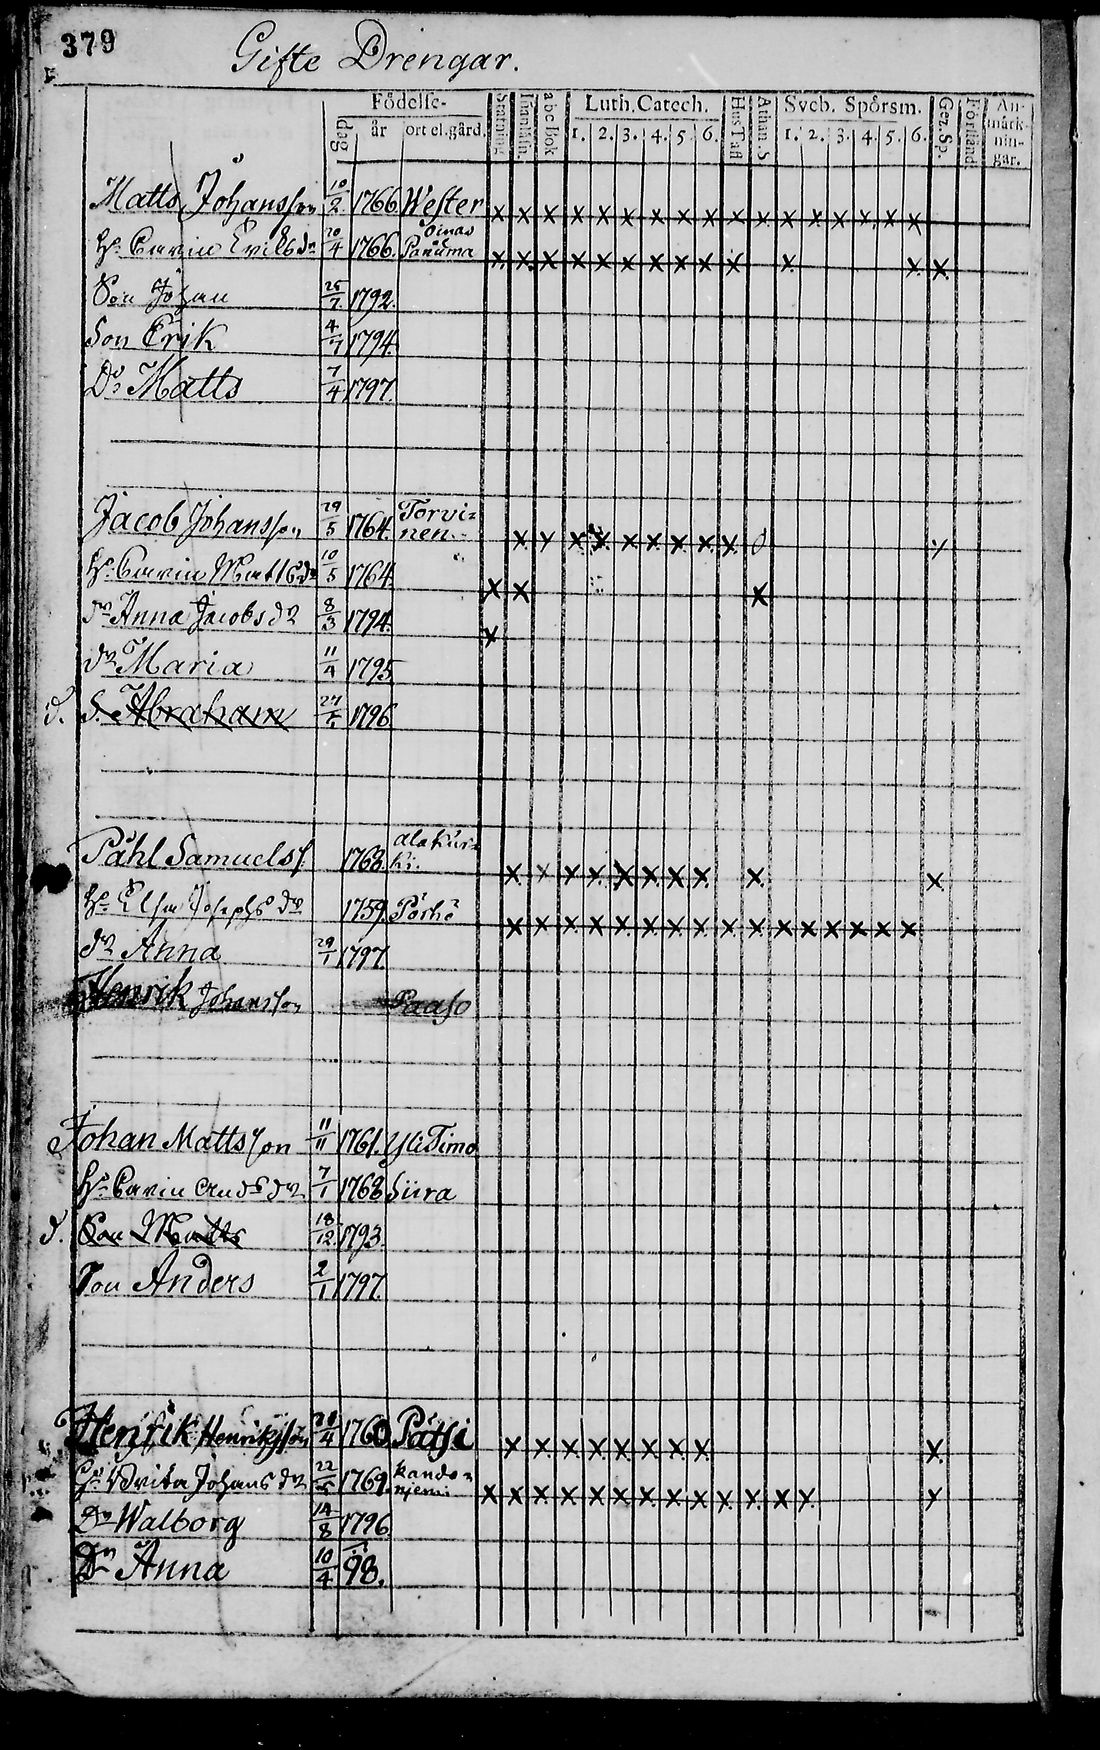 379
Gifte Drengar.
Födelse- Luth. Catech. Sveb. Spörsm. An-
dag år ort el. gård. Stafning Innanläsn. abc Bok 1. 2. 3. 4. 5. 6. Hus Tafl Athan. S 1. 2. 3. 4. 5. 6. Gez. Sp. Förstånd märk-
nin-
gar.
Matts Johansson 10/2 1766 Wester x x x x x x x x x x x x x x x x x
Oinas
H: Carin Eriksdr 20/4 1766. Panuma x x x x x x x x x x x x x
Son Johan 25/7 1792.
Son Erik 4/7 1794.
Do: Matts 7/4 1797.
Jacob Johansson 29/5 1764. Torvi=
nen x x x x x x x x x
H: Carin Mattsdr 10/5 1764. x x x
dr Anna Jacobsdr 8/3 1794. x
dr Maria 11/4 1795
d. S. Abraham 27/5 1796
Påhl Samuelss. 1768. alakur=
ki. x x x x x x x x x x
Hu Elsa Josephs dr 1759. Pörhö x x x x x x x x x x x x x x x
dr Anna 29/1 1797.
Henrik Johansson Paaso
Johan Mattsson 11/11 1761. YliTimo
H: Carin Andsdr 7/1 1768 Siira
d. Son Matts 18/12 1793.
Son Anders 2/1 1797.
Henrik Henriksson 28/4 1760 Pätsi x x x x x x x x x
Hu Brita Johansdr 22/5 1769. Kando=
njemi x x x x x x x x x x x x x x
Dr Walborg 14/8 1796
Dr Anna 10/4 98.